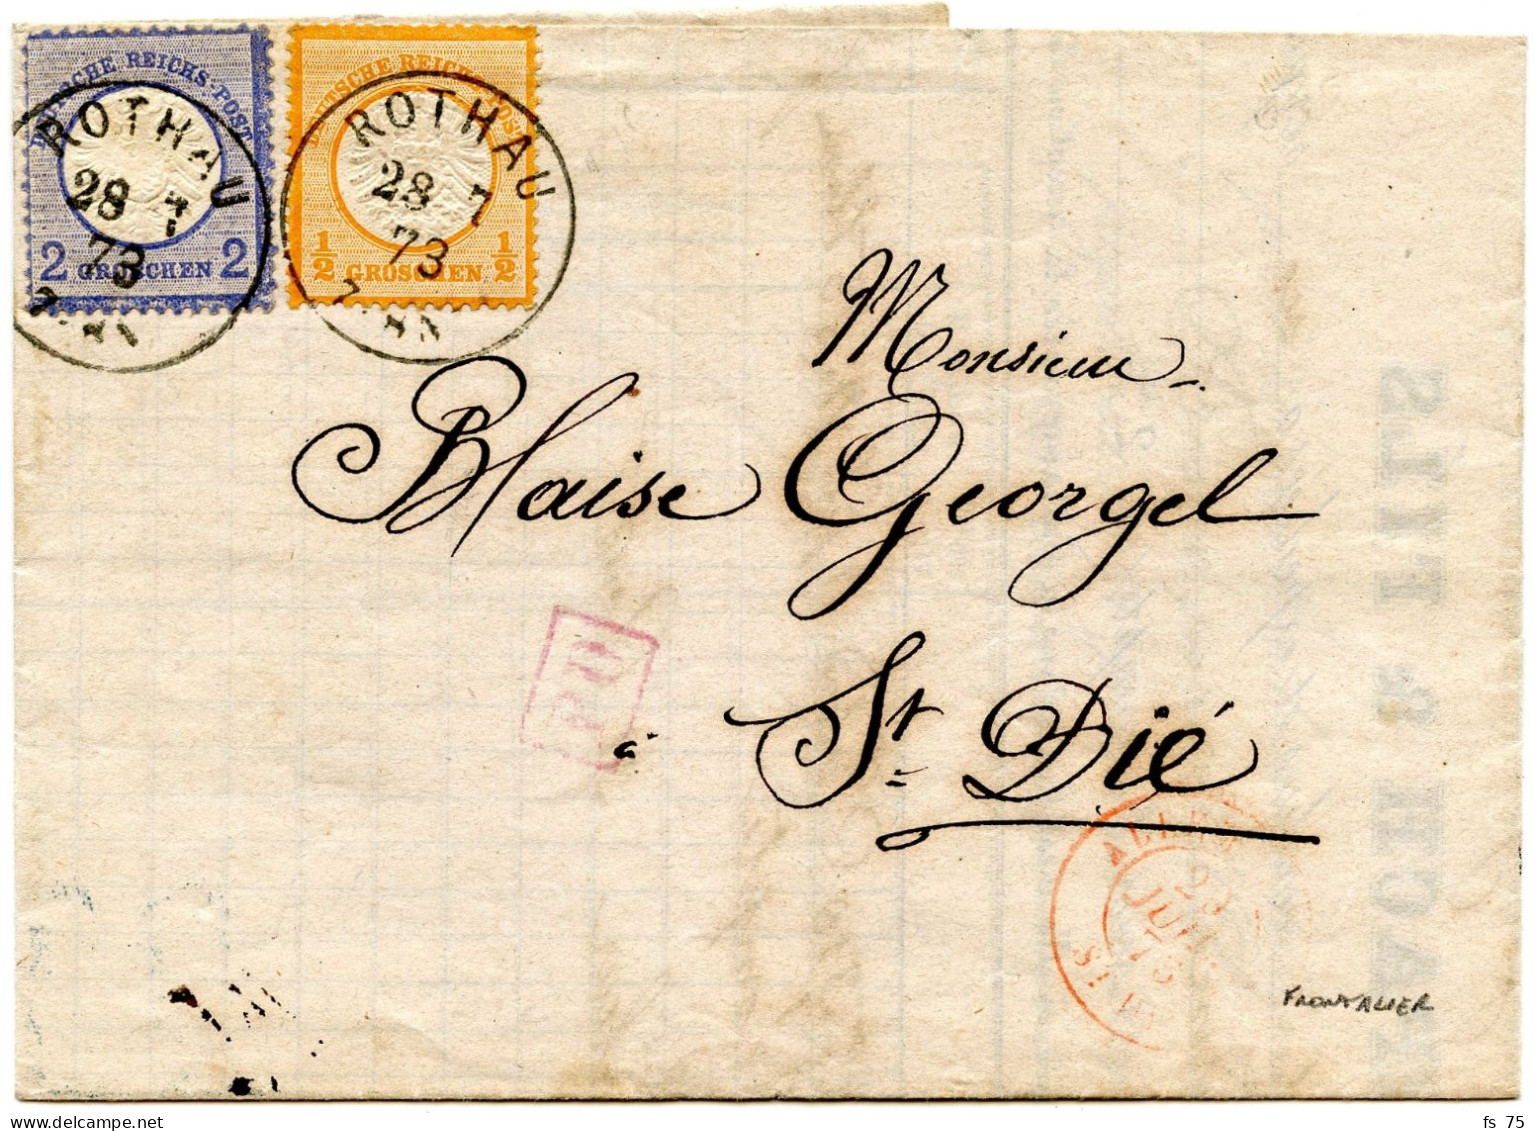 DEUTSCHE REICHS-POST
2 GROSCHEN 2
ROTHAU
28 7
73
DEUTSCHE REICHS-POST
1/2 GROSCHEN 1/2
ROTHAU
28 7
73
Monsieur
Blaise Georgel
PD
à St Dié
29
JUIL
73
FRONTALIER
& FILS
fs 75